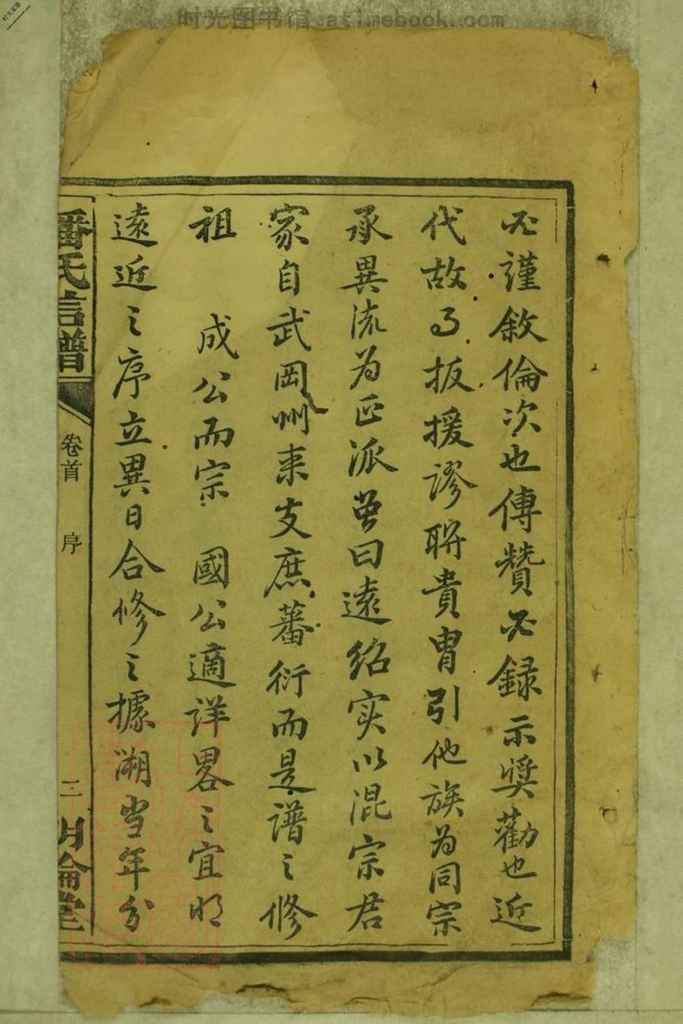 时光图书馆 atimebook.com
必謹敘倫次也傳贊必録示奨勸也近
代故事扳援謬聨貴胄引他族為同宗
承異流為正派曾曰遠紹实以混宗君
家自武岡州来支庶蕃衍而是譜之修
祖 成公而宗 國公適詳畧之宜明
遠近之序立異日合修之據溯当年分
潘氏信譜
卷首 序
三
明倫堂